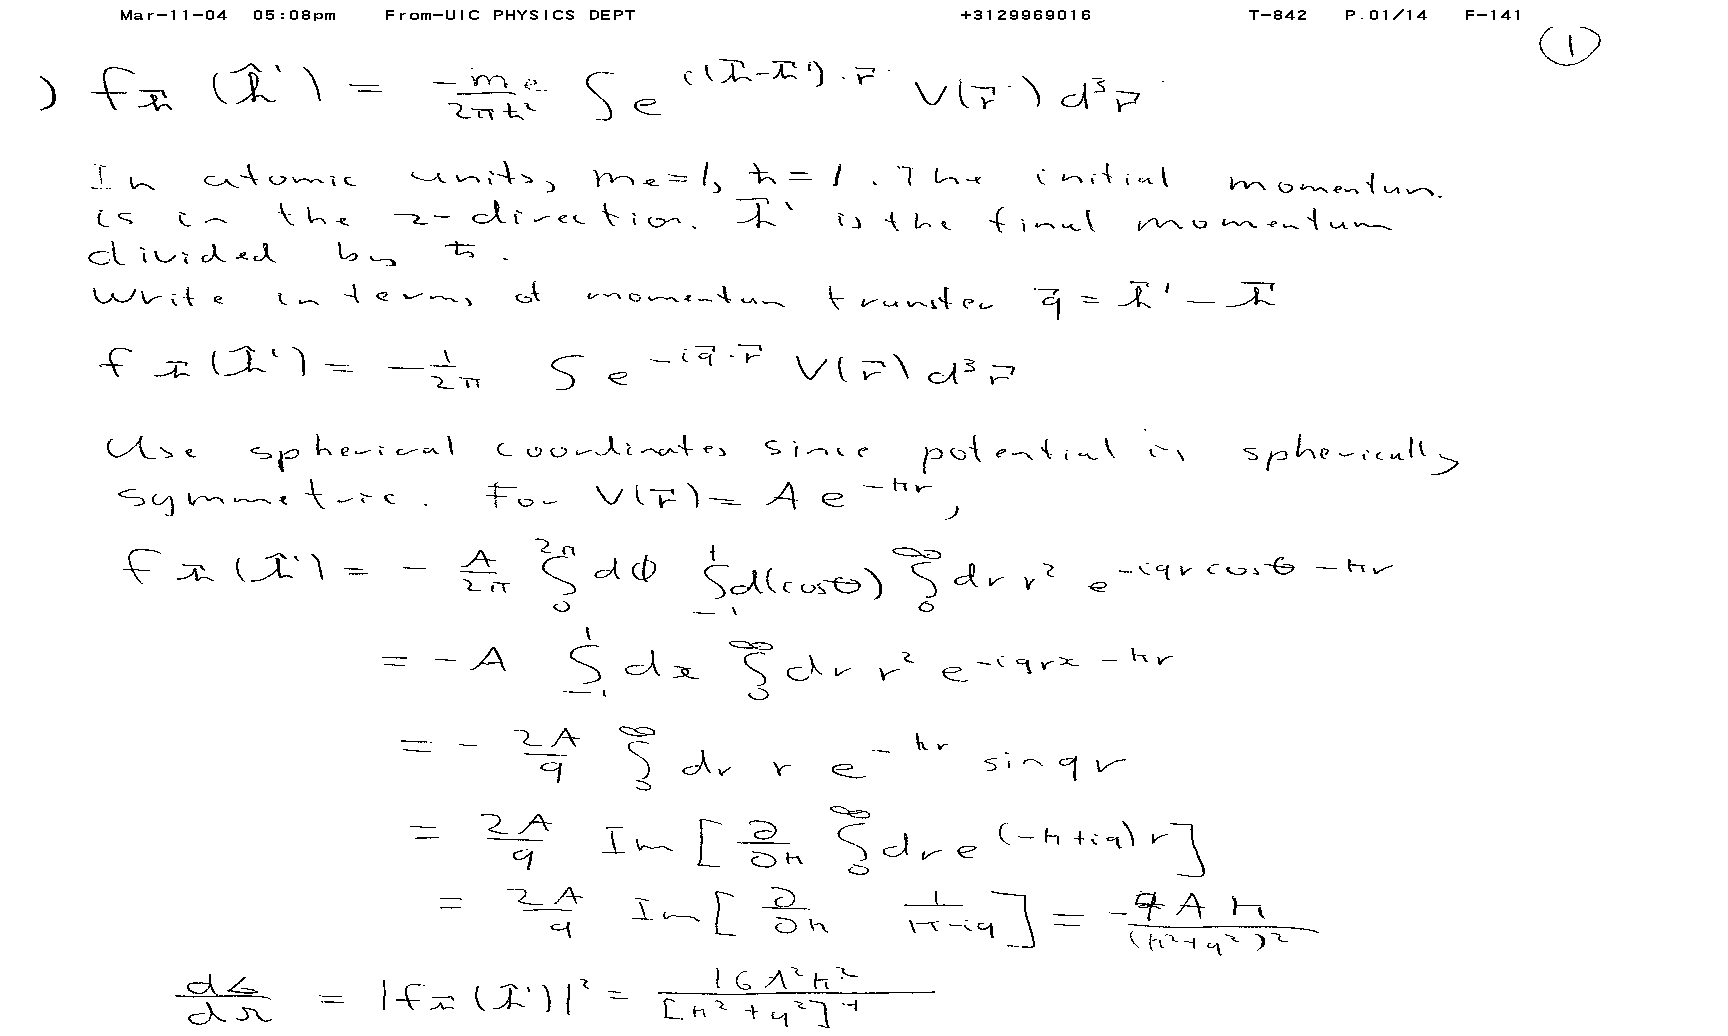 Mar-11-04 05:08pm From-UIC PHYSICS DEPT +3129969016 T-842 P.01/14 F-141
①
) f_k⃗ (k̂') = -m_e/2πħ² ∫ e^{i(k⃗-k⃗')·r⃗} V(r⃗) d³r⃗
In atomic units, me=1, ħ=1. The initial momentum
is in the z-direction. k⃗' is the final momentum
divided by ħ.
Write in terms of momentum transfer q⃗ = k⃗' - k⃗
f_k⃗ (k̂') = - 1/2π ∫ e^{-iq⃗·r⃗} V(r⃗) d³r⃗
Use spherical coordinates since potential is spherically
symmetric. For V(r⃗) = A e^{-κr},
f_k⃗ (k̂') = - A/2π ∫_0^{2π} dφ ∫_{-1}^{1} d(cosθ) ∫_0^∞ dr r² e^{-iqr cosθ - κr}
= -A ∫_{-1}^{1} dx ∫_0^∞ dr r² e^{-iqrx - κr}
= - 2A/q ∫_0^∞ dr r e^{-κr} sin qr
= 2A/q Im [ ∂/∂κ ∫_0^∞ dr e^{(-κ+iq)r} ]
= 2A/q Im [ ∂/∂κ 1/(κ-iq) ] = -4Aκ/(κ²+q²)²
dσ/dΩ = |f_k⃗ (k̂')|² = 16A²κ²/[κ²+q²]⁴